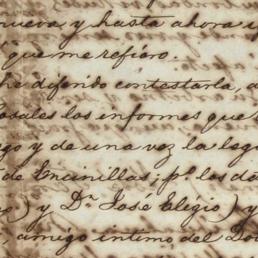 nueva y hasta ahora
que me refiero.
he diferido contestarla,
los informes que
y de una vez la
de Encinillas; pr. los
y Dn. José Eligio) y
, amigo íntimo del